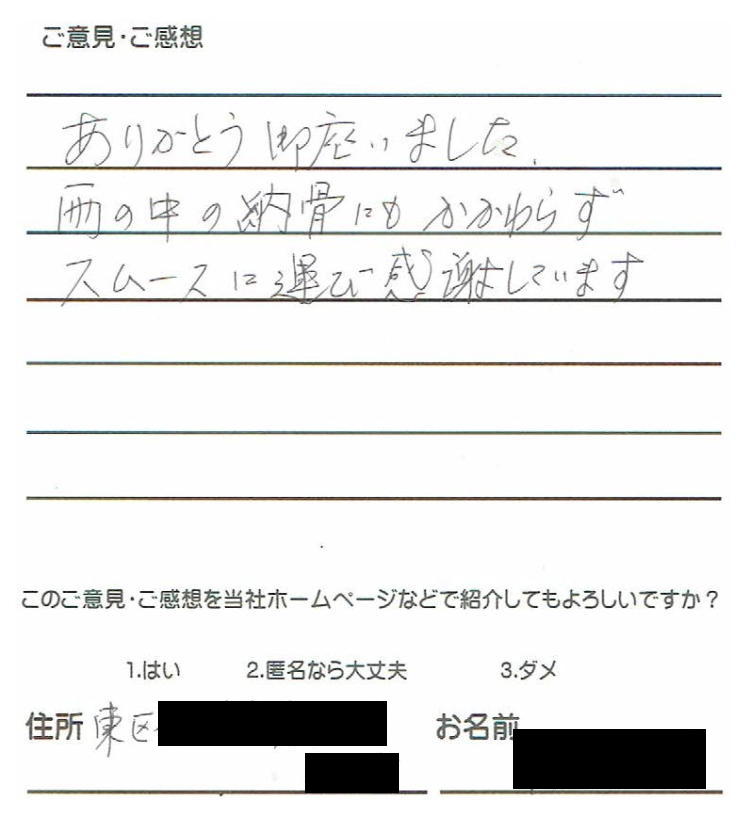 ご意見・ご感想
ありがとう御座いました.
雨の中の納骨にもかかわらず
スムースに運び感謝しています
このご意見・ご感想を当社ホームページなどで紹介してもよろしいですか？
1.はい 2.匿名なら大丈夫 3.ダメ
住所 東区 お名前